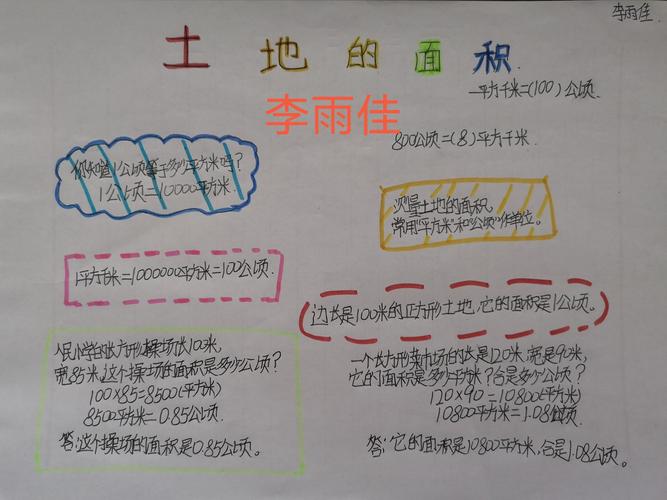 李雨佳
土地的面积
一平方千米=(100)公顷
李雨佳
800公顷=(8)平方千米
你知道1公顷等于多少平方米吗?
1公顷=10000平方米
测量土地的面积。
常用“平方米”和“公顷”作单位。
1平方千米=1000000平方米=100公顷
边长是100米的正方形土地,它的面积是1公顷。
民小学的长方形操场长100米,
宽85米,这个操场的面积是多少公顷?
100×85=8500(平方米)
8500平方米=0.85公顷
答:这个操场的面积是0.85公顷。
一个长方形菜市场的长是120米,宽是90米,
它的面积是多少平方米?合是多少公顷?
120×90=10800(平方米)
10800平方米=1.08公顷
答:它的面积是10800平方米,合是1.08公顷。